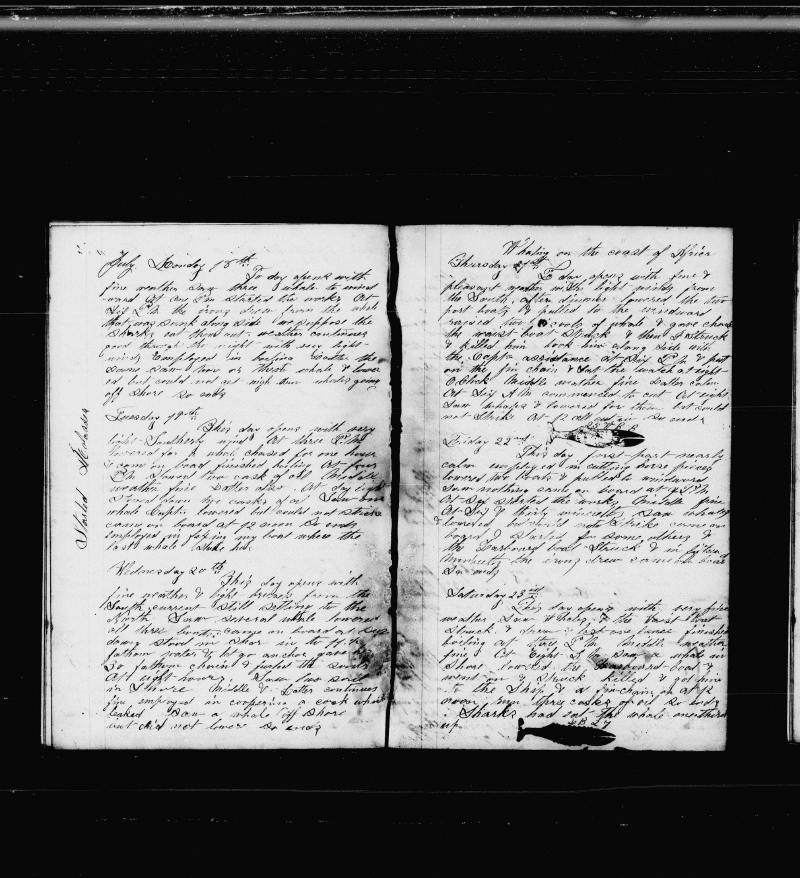 July Monday 18th
To day opens with
fine weather Saw three whale to wind
ward At One P.m started the works At
Six P.M the irons drew from the whale
that was sunk along side & we suppose the
Sharks eat them out weather continues
good through the night with very light
winds Employed in boiling South the
same saw two or three whale & lower
ed but could not get nigh them whales going
off Shore So ends
Tuesday 19th
This day opens with very
light Southerly wind At three P.M
lowered for a whale chased for one hour
& came on board finished boiling at four
P.m Stowed two cask of oil Middle
weather fine latter also At day light
Stowed down casks of oil Saw one
whale Capt lowered but could not Strike
came on board at 12 noon So ends
employed in fixing my boat where the
last whale Stoke her
Wednesday 20th
This day opens with
fine weather & light breeze from the
South current Still setting to the
North Saw several whale lowered
all three boats came on board at
down Stood in Shore in to
fathom water & let go anchor gave her
30 fathom chain & furled the sails
At eight hours Saw two sail
in Shore Middle & Latter continues
fine employed in coopering a cask which
leaked Saw a whale off Shore
but did not lower So ends
Whaling on the coast of Africa
Thursday 21st
To day opens with fine &
pleasant weather with light winds from
the South, after dinner lowered the two
port boats & pulled to the windward
raised two of whale & gave chase
the waist boat Struck & then I Struck
& killed him took him along side with
the Capts assistance at Six P.M & put
on the fin chain & Set the watch at eight
O Clock Middle weather fine Latter calm
At Six A.M commenced to cut At eight
Saw whales & lowered for them but could
not Strike At 12 all So ends
Friday 22nd
This day first part nearly
calm employed in cutting horse pieces
lowered two boats & pulled to windward
Saw nothing came on board at P.M
At Six started the works Middle fine
At Six & thirty minutes Saw whales
& lowered but could not Strike came on
board & started for some others &
the Larboard boat Struck & in fifteen
minutes the irons drew came on board
So ends
Saturday 23rd
This day opens with very fine
weather Saw whales & the Waist boat
Struck & drew lost one lance finished
boiling at P.M Middle weather
fine At Eight A.m Saw a whale in
Shore lowered the Larboard boat &
went on & Struck & killed & got him
to the Ship & a fin chain on at 12
noon casks of oil So ends
Sharks had eat the whale
up